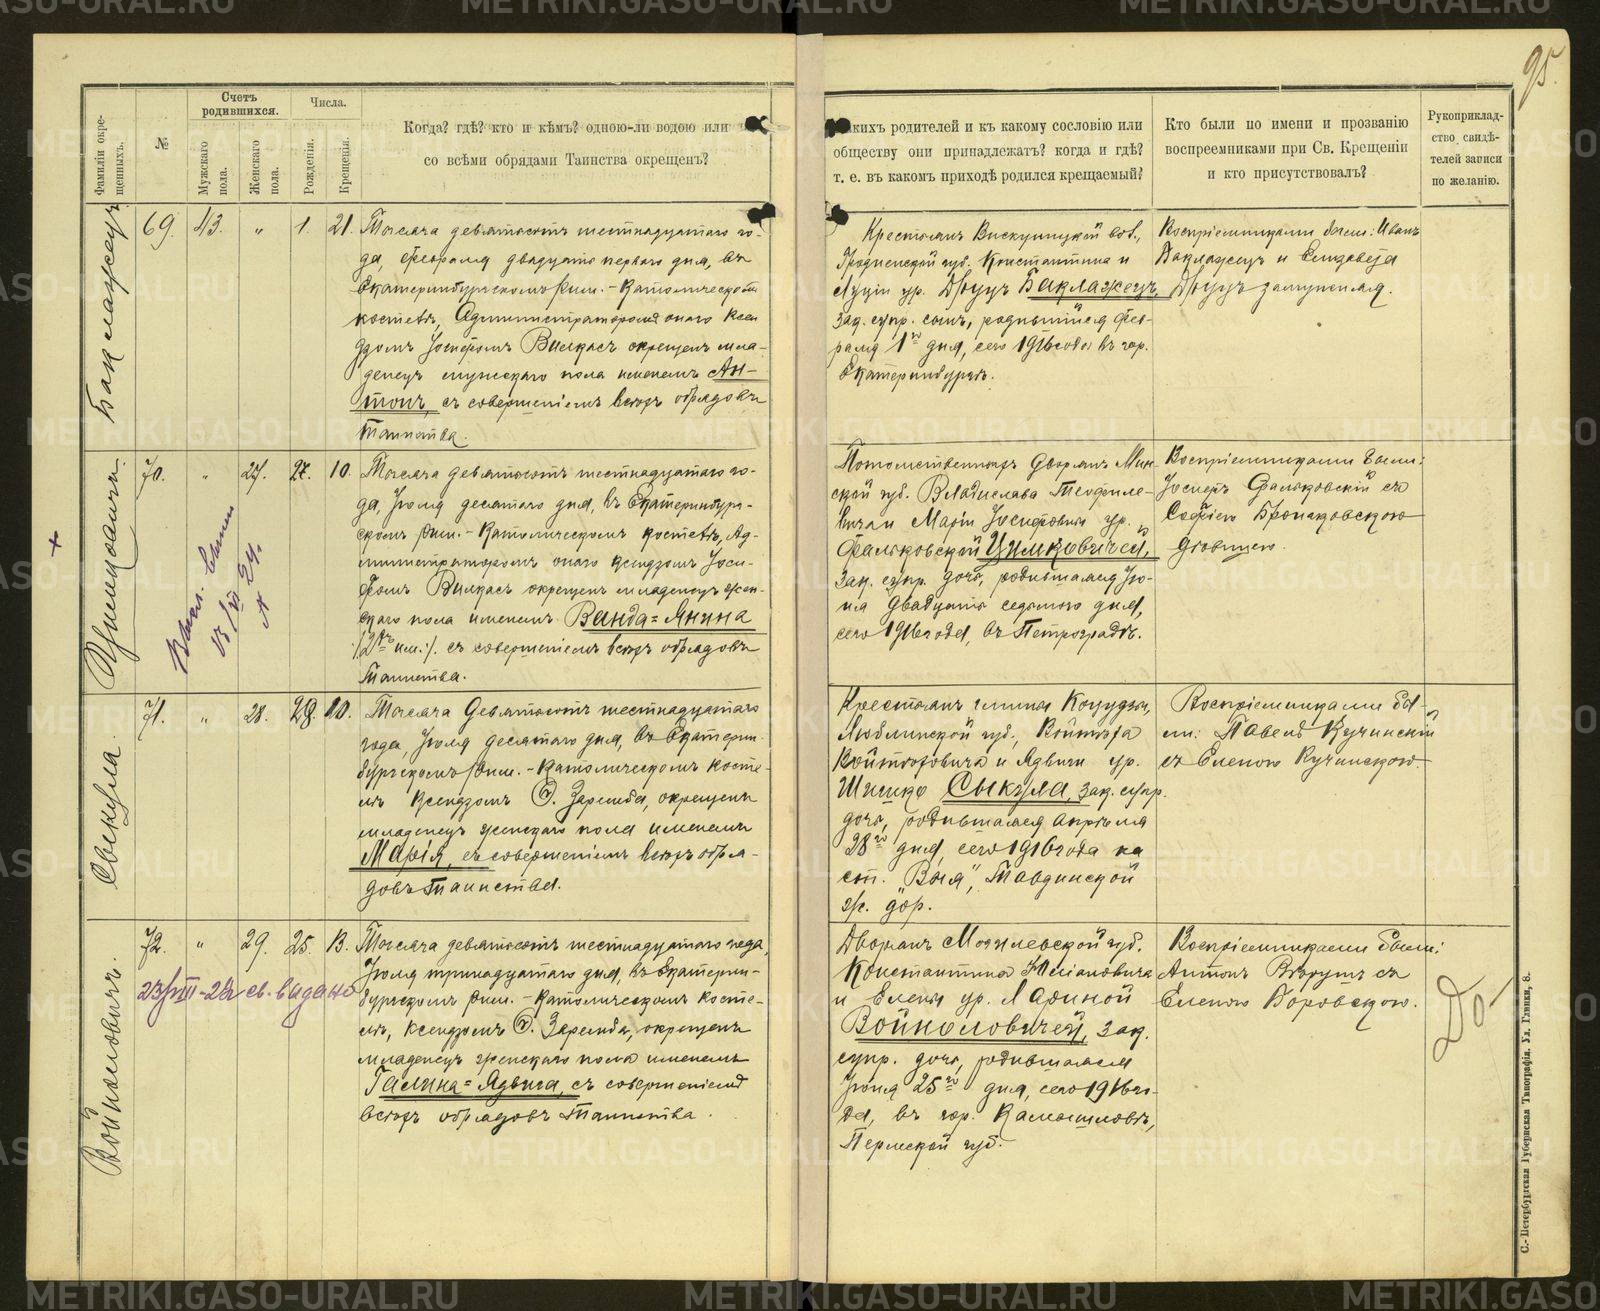 METRIKI.GASO-URAL.RU
95.
Фамиліи окрещенныхъ.
№
Счетъ родившихся.
Мужскаго пола.
Женскаго пола.
Числа.
Рожденія.
Крещенія.
Когда? гдѣ? кто и кѣмъ? одною-ли водою или
со всѣми обрядами Таинства окрещенъ?
какихъ родителей и къ какому сословію или
обществу они принадлежатъ? когда и гдѣ?
т. е. въ какомъ приходѣ родился крещаемый?
Кто были по имени и прозванію
воспреемниками при Св. Крещеніи
и кто присутствовалъ?
Рукоприклад-
ство свидѣ-
телей записи
по желанію.
Баклажецъ
69. 43. „ 1. 21.
Тысяча девятьсотъ шестнадцатаго го-
да, Февраля двадцать перваго дня, въ
Екатеринбургскомъ Рим.-Католическомъ
костелѣ, Администраторомъ онаго Ксен-
дзомъ Іосифомъ Вилкасъ окрещенъ мла-
денецъ мужскаго пола именемъ Ан-
тонъ, съ совершеніемъ всѣхъ обрядовъ
Таинства.
Крестьянъ вол.,
Гродненской губ. Константина и
Луціи ур. Друцъ Баклажецъ,
зак. супр. сынъ, родившійся Фев-
раля 1го дня, сего 1916 года въ гор.
Екатеринбургѣ.
Воспріемниками были: Иванъ
Баклажецъ и Елизавета
Друцъ
70. „ 27. 27. 10.
Выпис. выдан
13/VI 24.
Тысяча девятьсотъ шестнадцатаго го-
да, Іюля десятаго дня, въ Екатеринбург-
скомъ Рим.-Католическомъ костелѣ, Ад-
министраторомъ онаго Ксендзомъ Іоси-
фомъ Вилкасъ окрещенъ младенецъ жен-
скаго пола именемъ Ванда=Янина
/2хъ им./. съ совершеніемъ всѣхъ обрядовъ
Таинства.
Потомственныхъ Дворянъ Мин-
ской губ. Владислава Теофиле-
вича и Маріи Іосифовны ур.
Фальковской Цимковичей,
зак. супр. дочь, родившаяся Ію-
ня двадцать седьмого дня,
сего 1916 года, въ Петроградѣ.
Воспріемниками были:
Іосифъ Фальковскій съ
Софіею Бронаковскою
дѣвицею.
Свекула
71. „ 28. 28. 10.
Тысяча девятьсотъ шестнадцатаго
года, Іюля десятаго дня, въ Екатерин-
бургскомъ Рим.-Католическомъ косте-
лѣ Ксендзомъ Заремба, окрещенъ
младенецъ женскаго пола именемъ
Марія, съ совершеніемъ всѣхъ обря-
довъ Таинства.
Крестьянъ гмины
Люблинской губ., Войтѣха
Войтѣховича и Ядвиги ур.
Шишко Сыкула, зак. супр.
дочь, родившаяся Апрѣля
28го дня, сего 1916 года на
ст. „Выя“, Тавдинской
ж. дор.
Воспріемниками бы-
ли: Павелъ Кучинскій
съ Еленою Кучинскою.
Войноловичъ.
72. „ 29. 25. 13.
23/VIII-28 св. выдано
Тысяча девятьсотъ шестнадцатаго года,
Іюля тринадцатаго дня, въ Екатерин-
бургскомъ Рим.-Католическомъ косте-
лѣ, Ксендзомъ Заремба, окрещенъ
младенецъ женскаго пола именемъ
Галина=Ядвига, съ совершеніемъ
всѣхъ обрядовъ Таинства.
Дворянъ Могилевской губ.
Константина Юліановича
и Елены ур. Лариной
Войноловичей, зак.
супр. дочь, родившаяся
Іюня 25го дня, сего 1916 го-
да, въ гор. Камышловѣ,
Пермской губ.
Воспріемниками были:
Антонъ съ
Еленою Боровскою.
С.-Петербургская Губернская Типографія. Ул. Глинки, 8.